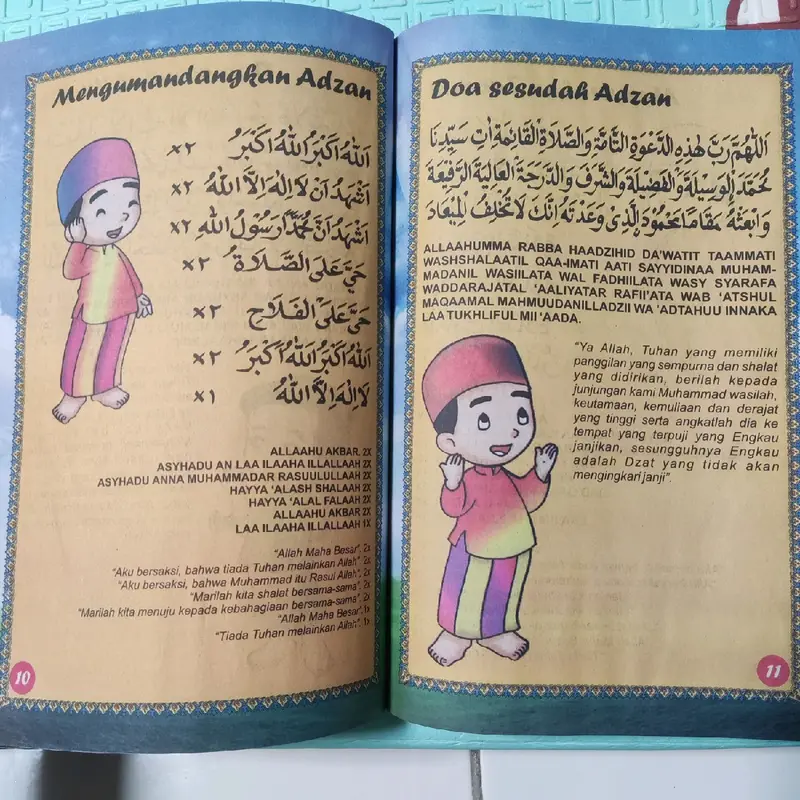 Mengumandangkan Adzan
اَللّٰهُ اَكْبَرُ اَللّٰهُ اَكْبَرُ ×٢
اَشْهَدُ اَنْ لَا اِلٰهَ اِلَّا اللّٰهُ ×٢
اَشْهَدُ اَنَّ مُحَمَّدًا رَسُوْلُ اللّٰهِ ×٢
حَيَّ عَلَى الصَّلَاةُ ×٢
حَيَّ عَلَى الْفَلَاحِ ×٢
اَللّٰهُ اَكْبَرُ اَللّٰهُ اَكْبَرُ ×٢
لَا اِلٰهَ اِلَّا اللّٰهُ ×١
ALLAAHU AKBAR. 2X
ASYHADU AN LAA ILAAHA ILLALLAAH 2X
ASYHADU ANNA MUHAMMADAR RASUULULLAAH 2X
HAYYA 'ALASH SHALAAH 2X
HAYYA 'ALAL FALAAH 2X
ALLAAHU AKBAR 2X
LAA ILAAHA ILLALLAAH 1X
"Allah Maha Besar". 2x
"Aku bersaksi, bahwa tiada Tuhan melainkan Allah". 2x
"Aku bersaksi, bahwa Muhammad itu Rasul Allah". 2x
"Marilah kita shalat bersama-sama". 2x
"Marilah kita menuju kepada kebahagiaan bersama-sama". 2x
"Allah Maha Besar". 1x
"Tiada Tuhan melainkan Allah". 1x
10
Doa sesudah Adzan
اَللّٰهُمَّ رَبَّ هٰذِهِ الدَّعْوَةِ التَّامَّةِ وَالصَّلَاةِ الْقَائِمَةِ اٰتِ سَيِّدِنَا
مُحَمَّدَ اِلْوَسِيْلَةَ وَالْفَضِيْلَةَ وَالشَّرَفَ وَالدَّرَجَةَ الْعَالِيَةَ الرَّفِيْعَةَ
وَابْعَثْهُ مَقَامًا مَحْمُوْدَ اِلَّذِيْ وَعَدْتَهُ اِنَّكَ لَا تُخْلِفُ الْمِيْعَادَ
ALLAAHUMMA RABBA HAADZIHID DA'WATIT TAAMMATI
WASHSHALAATIL QAA-IMATI AATI SAYYIDINAA MUHAM-
MADANIL WASIILATA WAL FADHIILATA WASY SYARAFA
WADDARAJATAL 'AALIYATAR RAFII'ATA WAB 'ATSHUL
MAQAAMAL MAHMUUDANILLADZII WA 'ADTAHUU INNAKA
LAA TUKHLIFUL MII 'AADA.
"Ya Allah, Tuhan yang memiliki
panggilan yang sempurna dan shalat
yang didirikan, berilah kepada
junjungan kami Muhammad wasilah,
keutamaan, kemuliaan dan derajat
yang tinggi serta angkatlah dia ke
tempat yang terpuji yang Engkau
janjikan, sesungguhnya Engkau
adalah Dzat yang tidak akan
mengingkari janji".
11